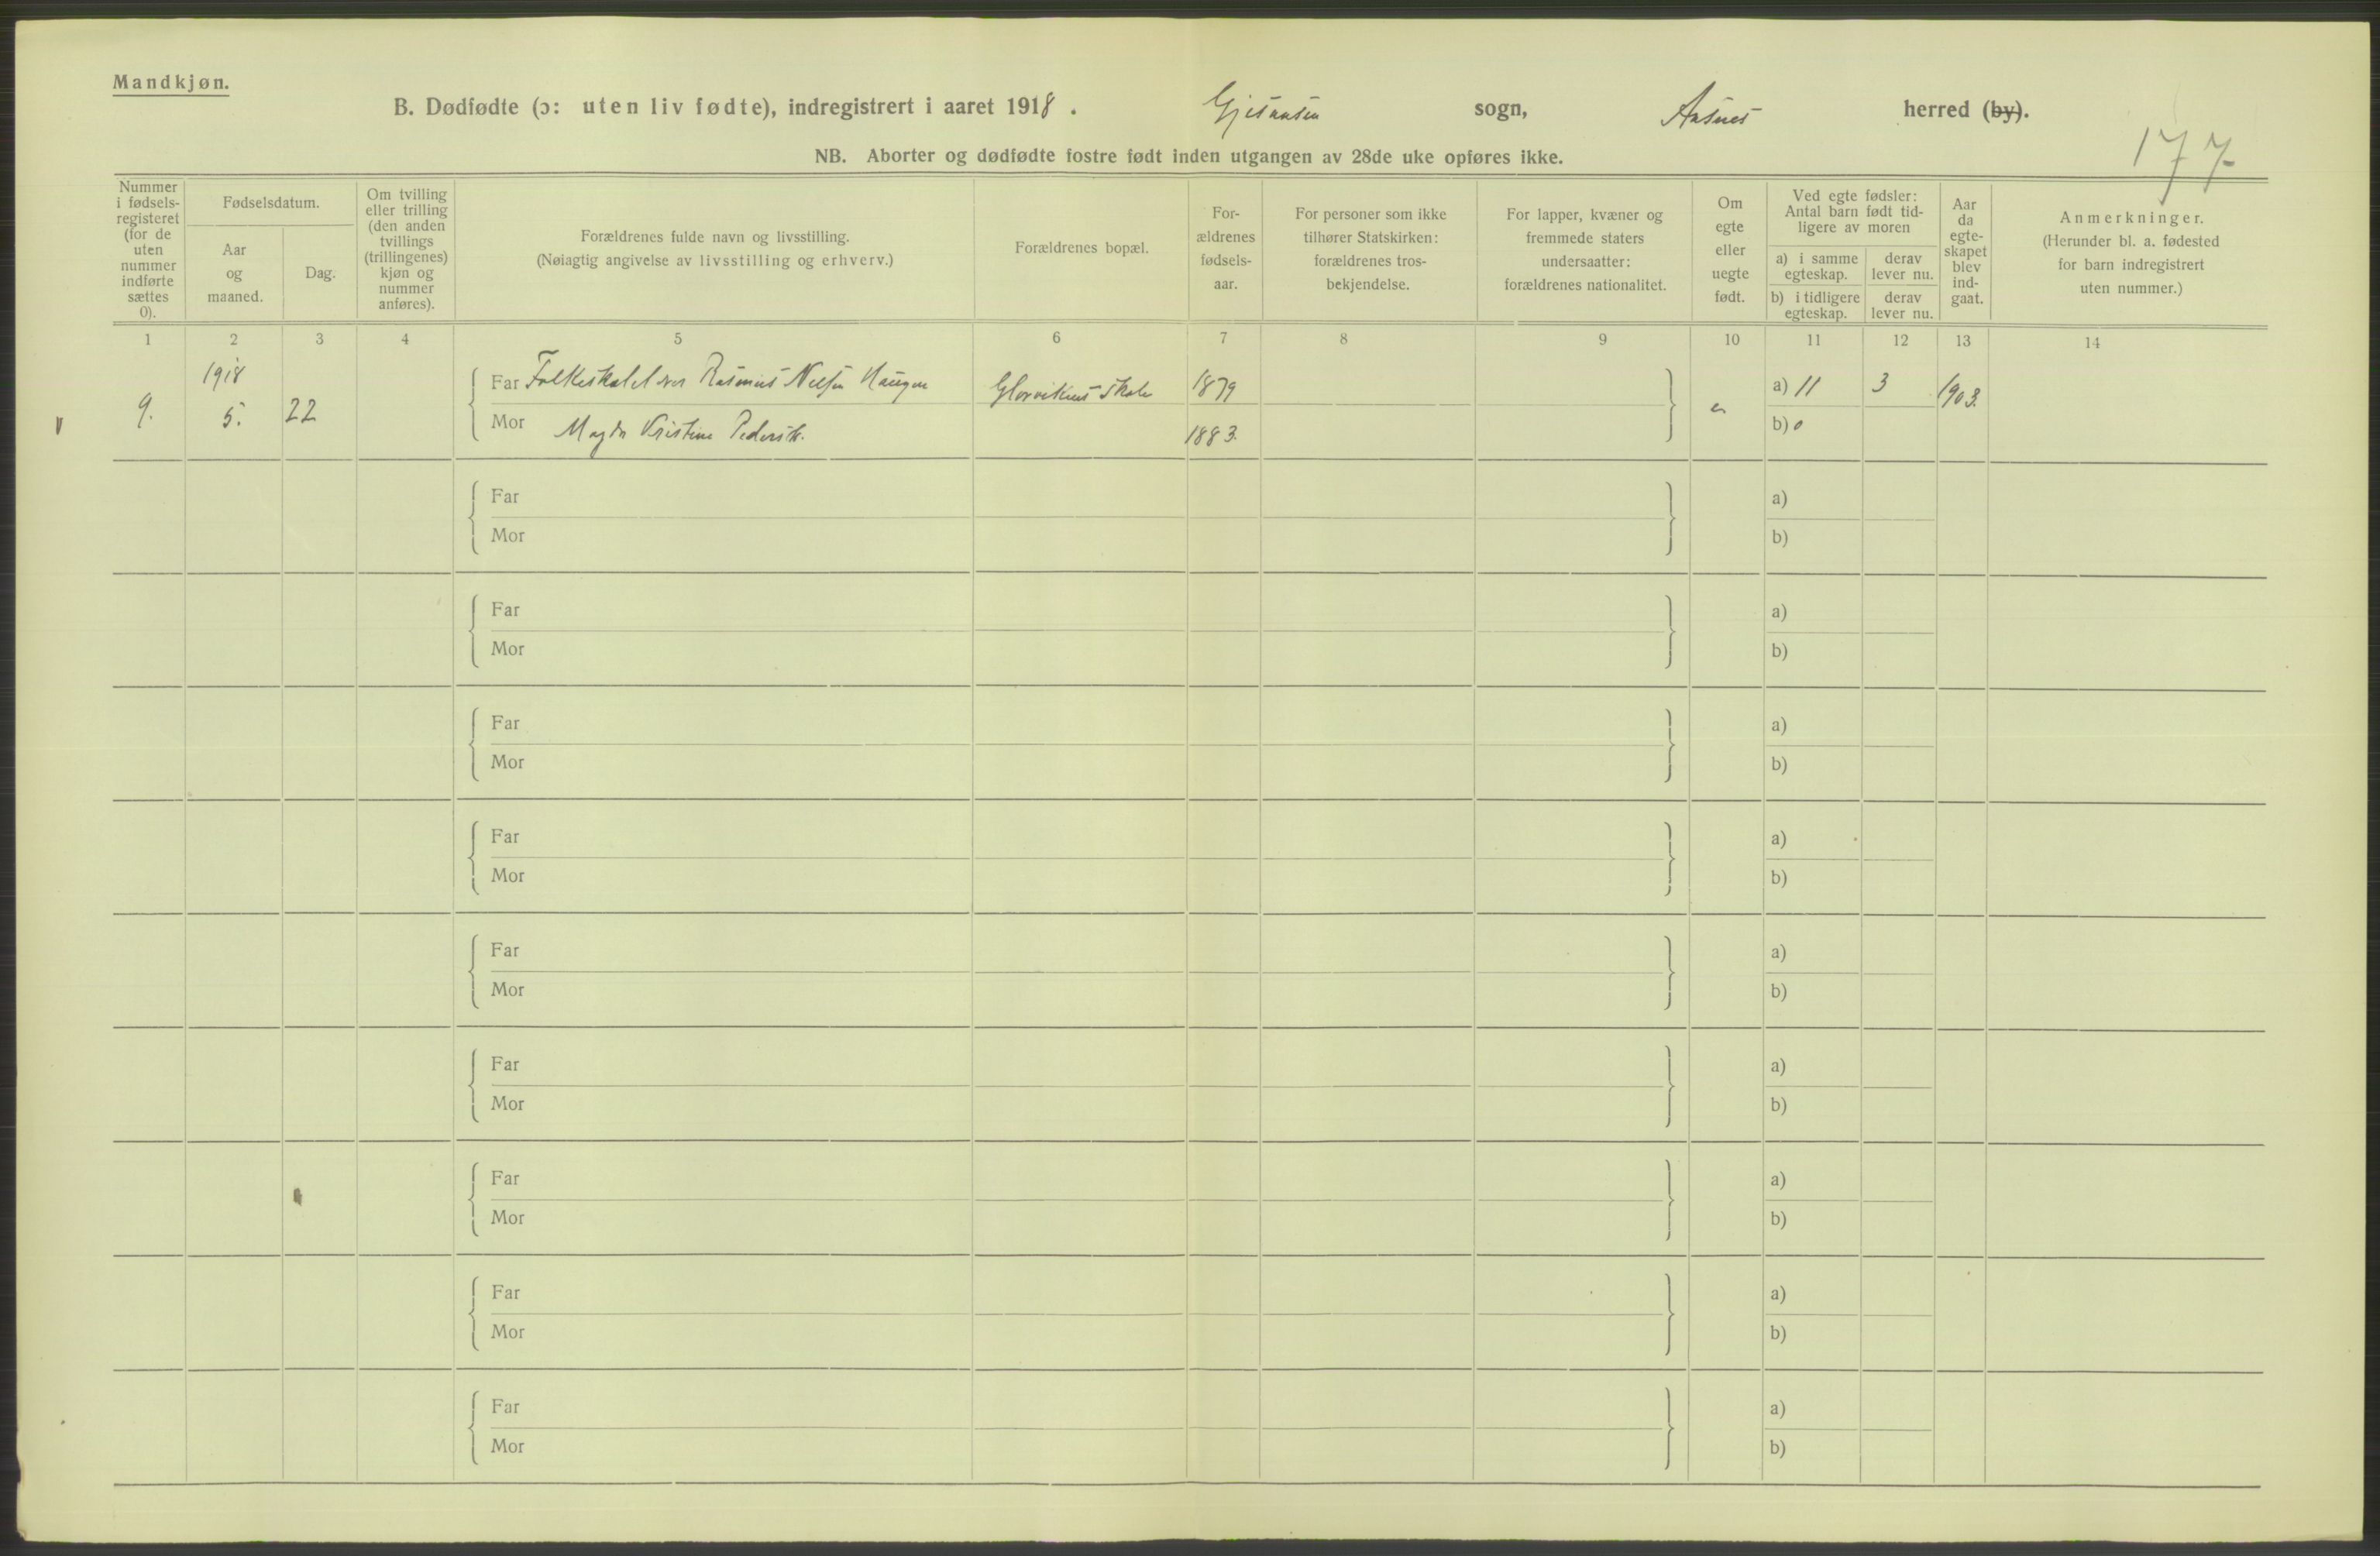 Mandkjøn.
B. Dødfødte (ɔ: uten liv fødte), indregistrert i aaret 1918. Gjesaasen sogn, Aasnes herred (by).
177
NB. Aborter og dødfødte fostre født inden utgangen av 28de uke opføres ikke.
Nummer i fødsels-registeret (for de uten nummer indførte sættes 0).
Fødselsdatum.
Aar og maaned.
Dag.
Om tvilling eller trilling (den anden tvillings (trillingenes) kjøn og nummer anføres).
Forældrenes fulde navn og livsstilling.
(Nøiagtig angivelse av livsstilling og erhverv.)
Forældrenes bopæl.
For-ældrenes fødsels-aar.
For personer som ikke tilhører Statskirken: forældrenes tros-bekjendelse.
For lapper, kvæner og fremmede staters undersaatter: forældrenes nationalitet.
Om egte eller uegte født.
Ved egte fødsler: Antal barn født tid-ligere av moren
a) i samme egteskap.
derav lever nu.
b) i tidligere egteskap.
derav lever nu.
Aar da egte-skapet blev ind-gaat.
Anmerkninger.
(Herunder bl. a. fødested for barn indregistrert uten nummer.)
1 2 3 4 5 6 7 8 9 10 11 12 13 14
v 9. 1918 5. 22
Far Rasmus Nilsen Haugen skole 1879
Mor Magda Kristine Peders 1883.
e
a) 11 3 1903.
b) 0
Far a)
Mor b)
Far a)
Mor b)
Far a)
Mor b)
Far a)
Mor b)
Far a)
Mor b)
Far a)
Mor b)
Far a)
Mor b)
Far a)
Mor b)
Far a)
Mor b)